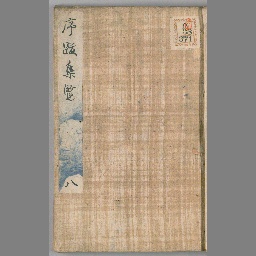 序跋集覽
八